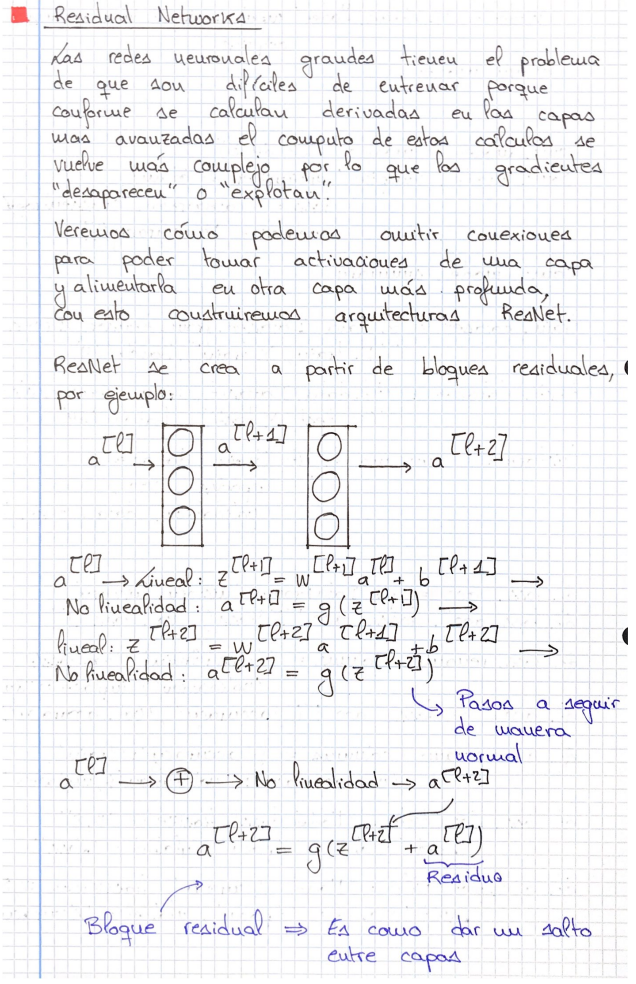 Residual Networks
Las redes neuronales grandes tienen el problema
de que son difíciles de entrenar porque
conforme se calculan derivadas en las capas
mas avanzadas el computo de estos calculos se
vuelve más complejo por lo que los gradientes
"desaparecen" o "explotan".
Veremos cómo podemos omitir conexiones
para poder tomar activaciones de una capa
y alimentarla en otra capa más profunda,
con esto construiremos arquitecturas ResNet.
ResNet se crea a partir de bloques residuales,
por ejemplo:
a^[l] → a^[l+1] → → a^[l+2]
a^[l] → Lineal: z^[l+1] = w^[l+1] a^[l] + b^[l+1] →
No linealidad: a^[l+1] = g(z^[l+1]) →
lineal: z^[l+2] = w^[l+2] a^[l+1] + b^[l+2] →
No linealidad: a^[l+2] = g(z^[l+2])
↳ Pasos a seguir
de manera
normal
a^[l] → ⊕ → No linealidad → a^[l+2]
a^[l+2] = g(z^[l+2] + a^[l])
Residuo
Bloque residual ⇒ Es como dar un salto
entre capas